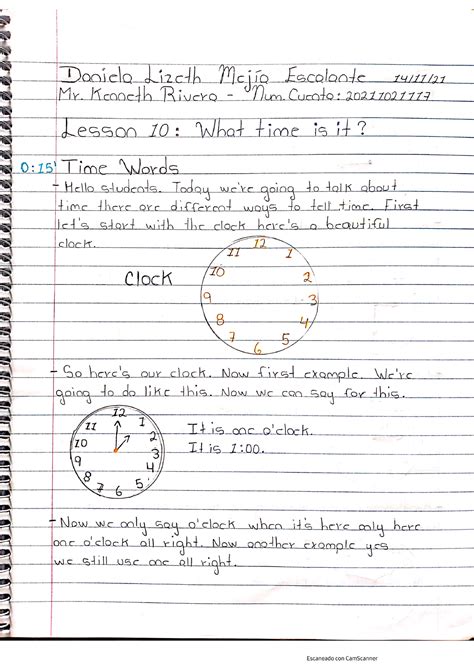 Daniela Lizeth Mejía Escalante 14/11/21
Mr. Kenneth Rivera - Num. Cuenta: 20211021717
Lesson 10: What time is it?
0:15' Time Words
- Hello students. Today we're going to talk about
time there are different ways to tell time. First
let's start with the clock here's a beautiful
clock.
Clock
12
11 1
10 2
9 3
8 4
7 5
6
- So here's our clock. Now first example. We're
going to do like this. Now we can say for this.
12
11 1
10 2
9 3
8 4
7 5
6
It is one o'clock.
It is 1:00.
- Now we only say o'clock when it's here only here
one o'clock all right. Now another example yes
we still use one all right.
Escaneado con CamScanner